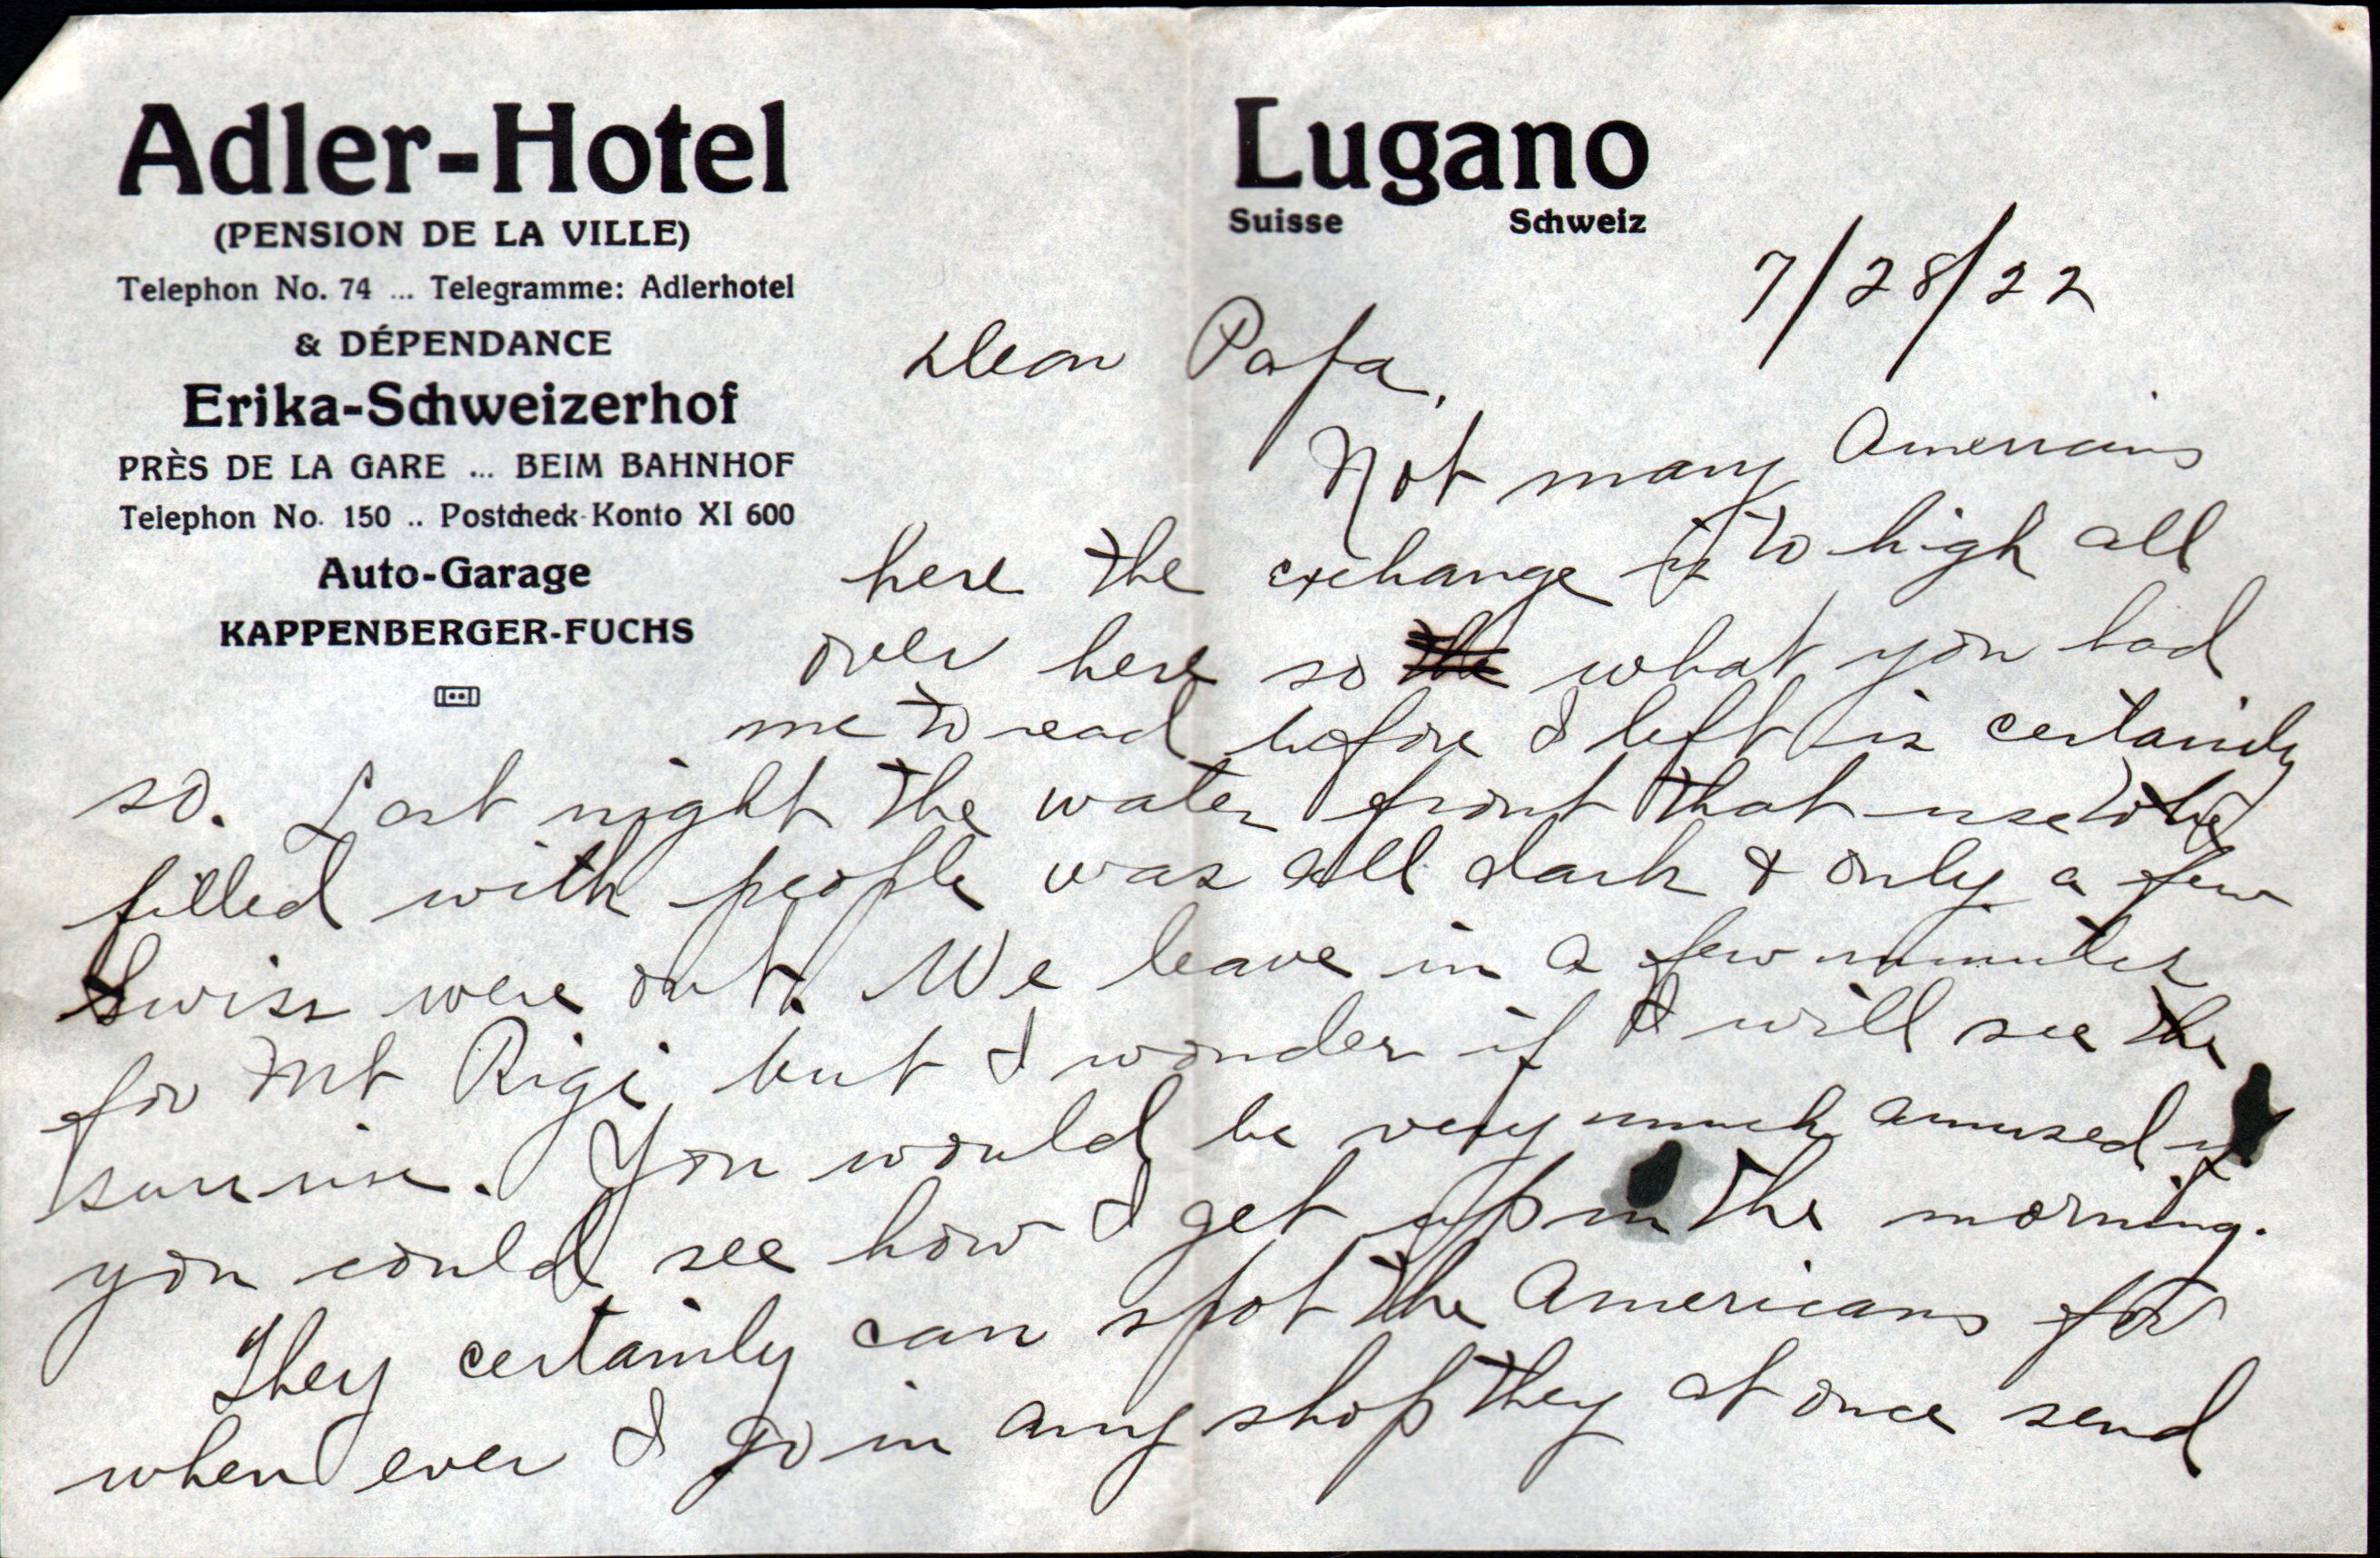 Adler-Hotel
(PENSION DE LA VILLE)
Telephon No. 74 ... Telegramme: Adlerhotel
& DÉPENDANCE
Erika-Schweizerhof
PRÈS DE LA GARE ... BEIM BAHNHOF
Telephon No. 150 .. Postcheck-Konto XI 600
Auto-Garage
KAPPENBERGER-FUCHS
Lugano
Suisse Schweiz
7/28/22
Dear Papa,
Not many Americans
here the exchange is to high all
over here so the what you had
me to read before I left is certainly
so. Last night the water front that use to be
filled with people was all dark & only a few
Swiss were out. We leave in a few minutes
for Mt Rigi but I wonder if I will see the
sunrise. You would be very much amused if
you could see how I get up in the morning.
They certainly can spot the Americans for
when ever I go in any shop they at once send